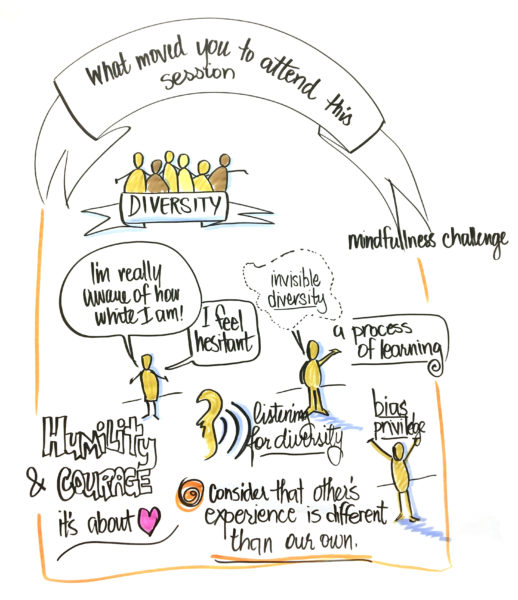 What moved you to attend this
session
DIVERSITY
mindfullness challenge
I'm really
aware of how
white I am!
I feel
hesitant
invisible
diversity
a process
of learning
HUMILITY
& COURAGE
it's about
listening
for diversity
bias
privilege
Consider that other's
experience is different
than our own.